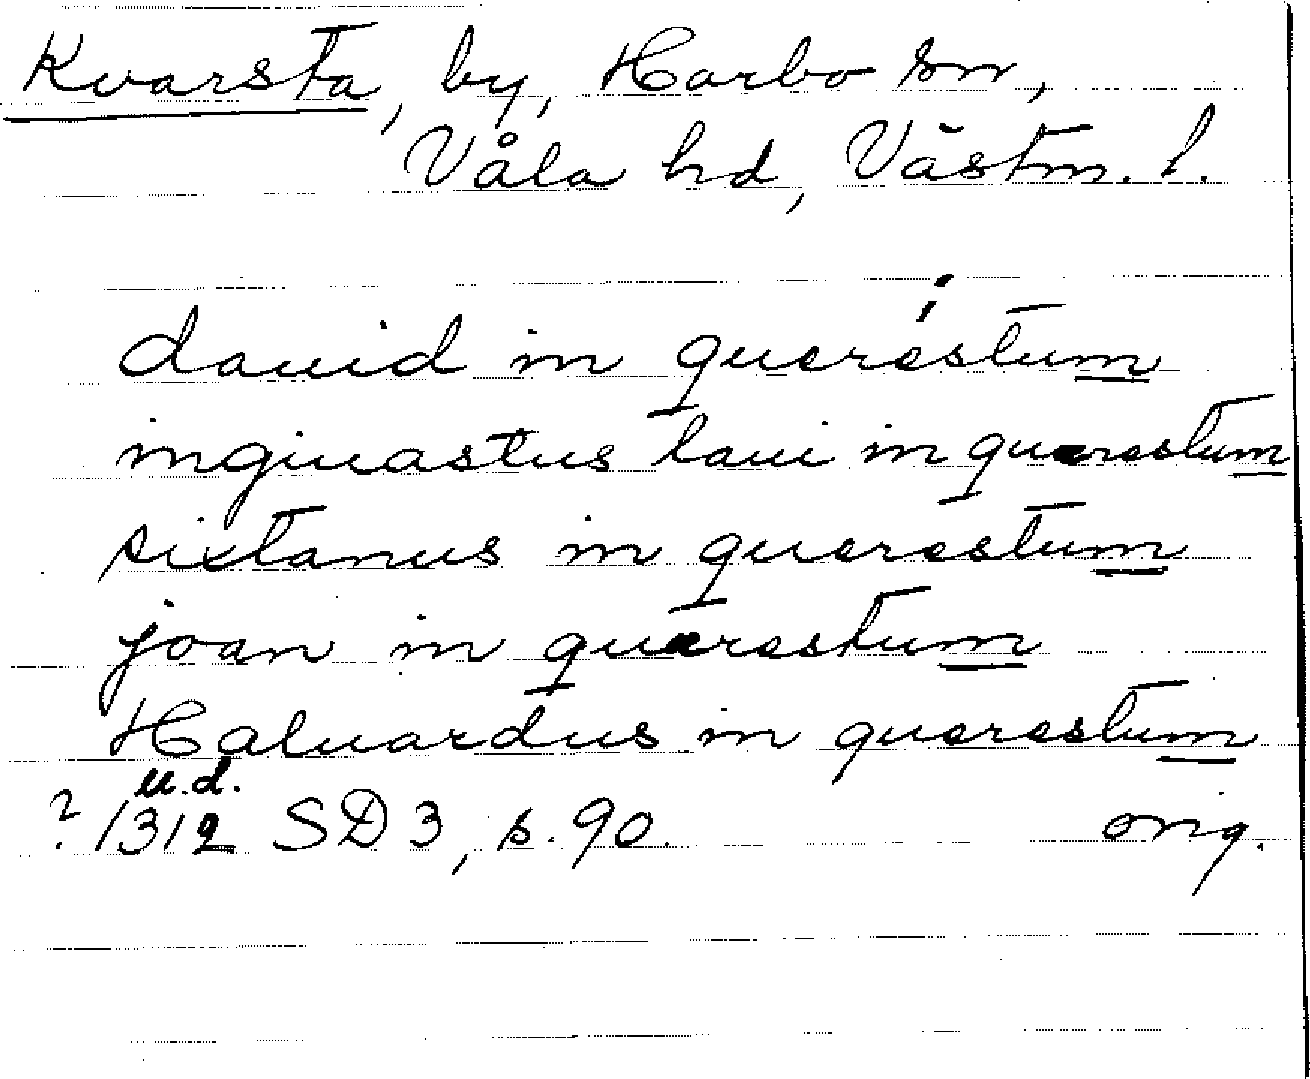 Kvarsta, by, Harbo sn,
Våla hd, Västm. l.
dauid in querestum
inguastus laui in querestum
sixtanus in querestum
joan in querestum
Haluardus in querestum
u.d.
? 1312 SD 3, s. 90. orig.